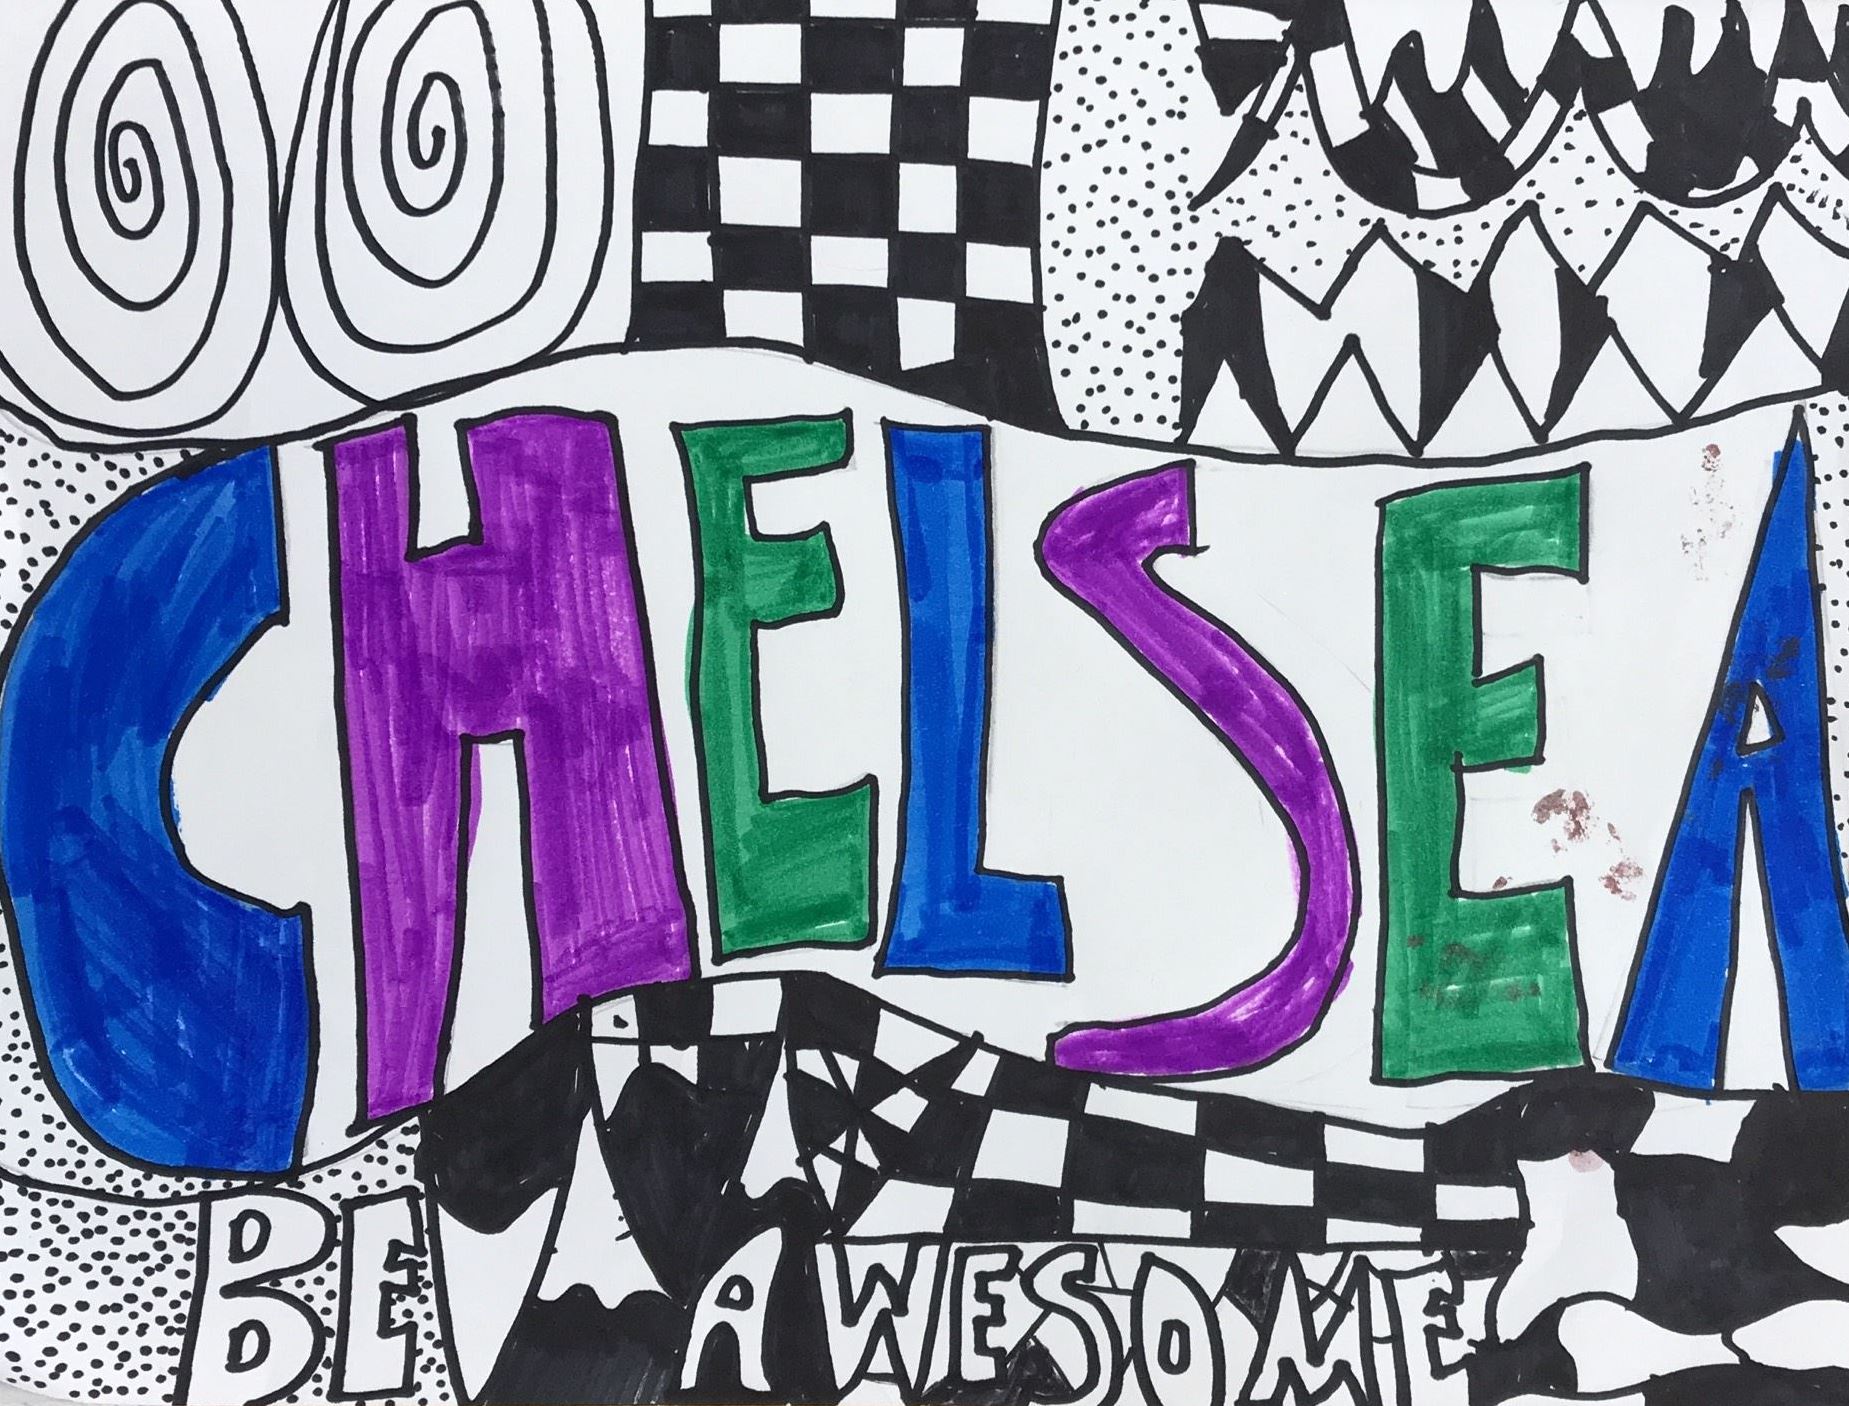 CHELSEA
BE AWESOME